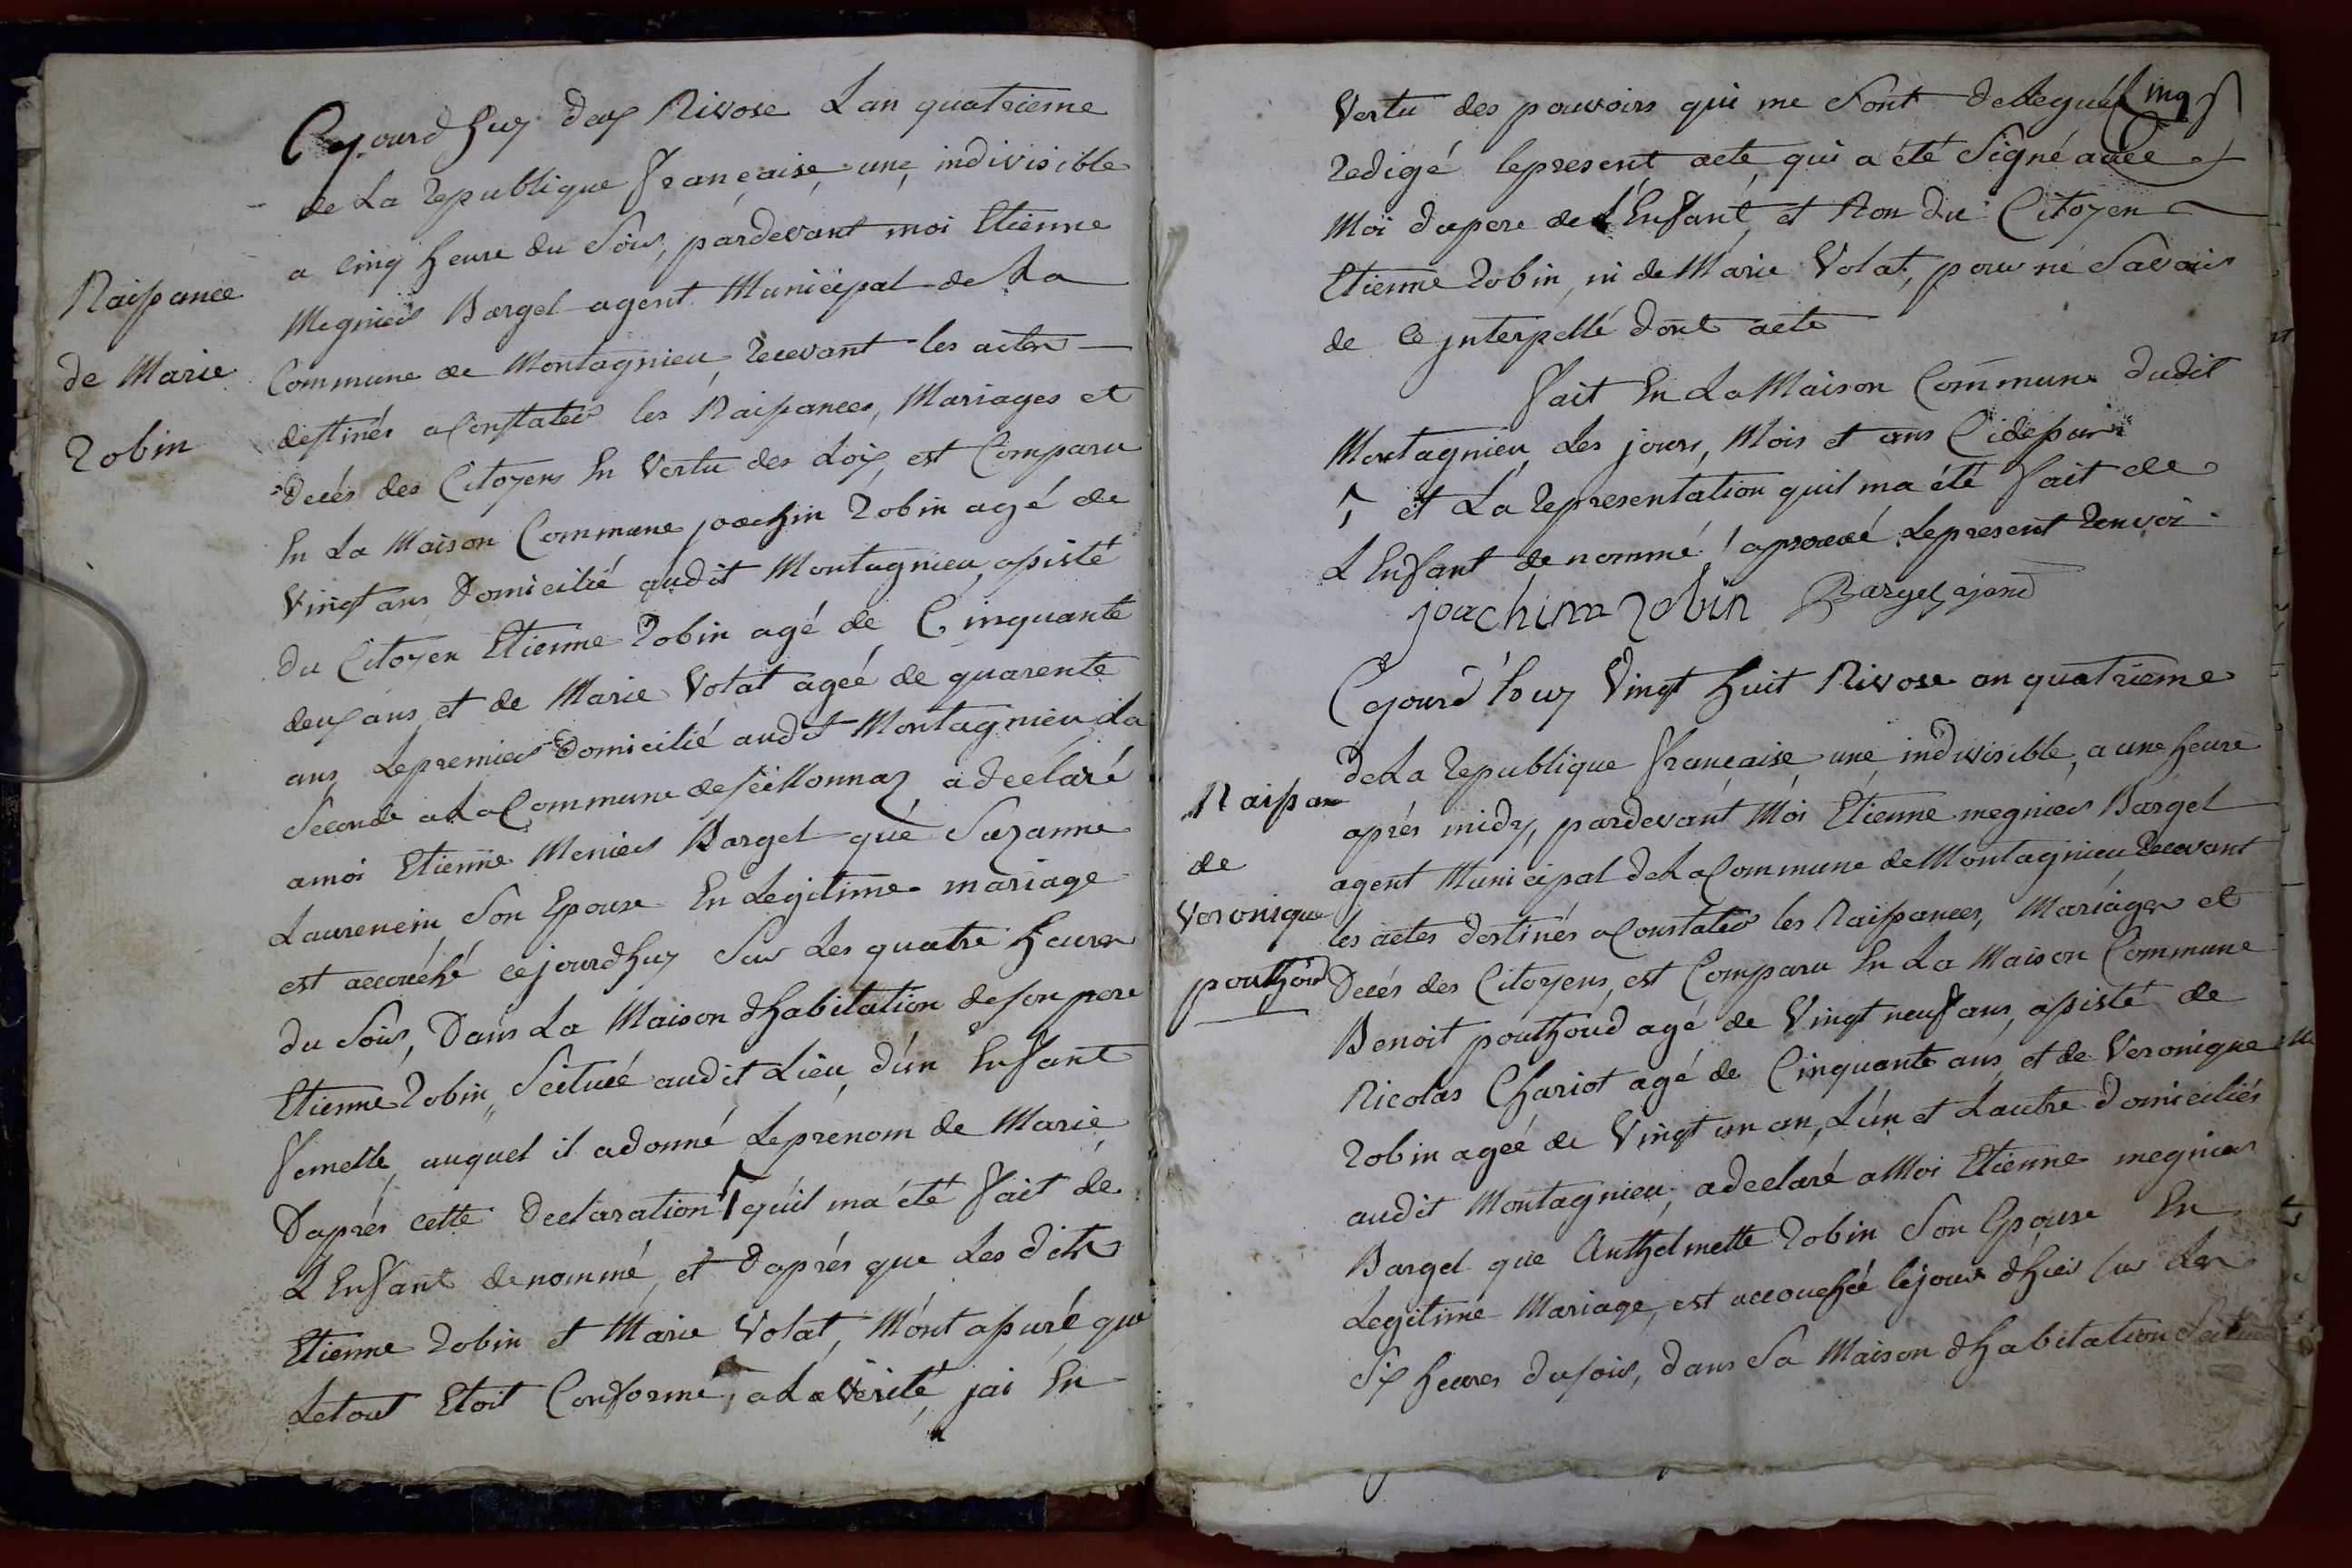 Naissance
de Marie
Robin
Cejourdhuy dix Nivose Lan quatrieme
de La republique française une indivisible
a cinq heure du Soir, pardevant moi Etienne
Megnier Bargel agent Municipal de La
Commune de Montagnieu, recevant les actes
destinés a Constater les Naissances, Mariages et
Decés des Citoyens En Vertu des Loix, est Comparu
En La Maison Commune joachin Robin agé de
Vingt ans Domicilié audit Montagnieu, assisté
du Citoyen Etienne Robin agé de Cinquante
deux ans, et de Marie Volat agée de quarente
ans, Lepremier Domicilié audit Montagnieu La
Seconde a La Commune de seillonnaz, a declaré
amoi Etienne Menier Bargel que Suzanne
Laurencin Son Epouse En Legitime mariage
est accouché cejourdhuy Sur Les quatre heures
du Soir, Dans La Maison dhabitation de son pere
Etienne Robin, Scituée audit Lieu, d'un Enfant
femelle, auquel il adonné Leprenom de Marie
Daprés cette Declaration quil ma été fait de
L Enfant denommé, et Daprés que Les dits
Etienne Robin et Marie Volat, M'ont assuré que
Letout Etoit Conforme, a La Verité, jai En
Vertu des pouvoirs qui me Sont delegués
redigé lepresent acte, qui a été Signé avec
Moi dupere de L'Enfant, et Non du Citoyen
Etienne Robin, ni de Marie Volat, pour ne Savoir
de Ce jnterpellé dont acte
fait En La Maison Commune dudit
Montagnieu, Les jours, Mois et ans Cidessus
et La representation quil ma été fait de
L Enfant denommé / aprouvé Lepresent Renvoi
joachim robin Bargel ajend
Naissan
de
Veronique
pouthoud
Cejourd'huy Vingt huit Nivose an quatrieme
de La republique française une, indivisible, a une heure
aprés midy, pardevant Moi Etienne megnier Bargel
agent Municipal de La Commune de Montagnieu Recevant
les actes destinés a Constater les Naissances, Mariages et
Decés des Citoyens, est Comparu En La Maison Commune
Benoit pouthoud agé de Vingt neuf ans, assisté de
Nicolas Chariot agé de Cinquante ans, et de Veronique
Robin agée de Vingt un an, L'un et Lautre Domiciliés
audit Montagnieu, adeclaré a Moi Etienne megnier
Bargel que Anthelmette Robin Son Epouse En
Legitime Mariage, est accouchée lejour dhier sur Les
Six heures du soir, dans Sa Maison dhabitation Scituée